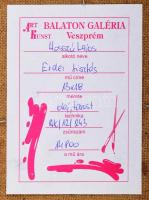 ART KUNST BALATON GALÉRIA
Veszprém
Hosszú Lajos
alkotó neve
Erdei tisztás
mű címe
13x18
mérete
olaj, farost
technika
zsűriszám
14.900
a mű ára